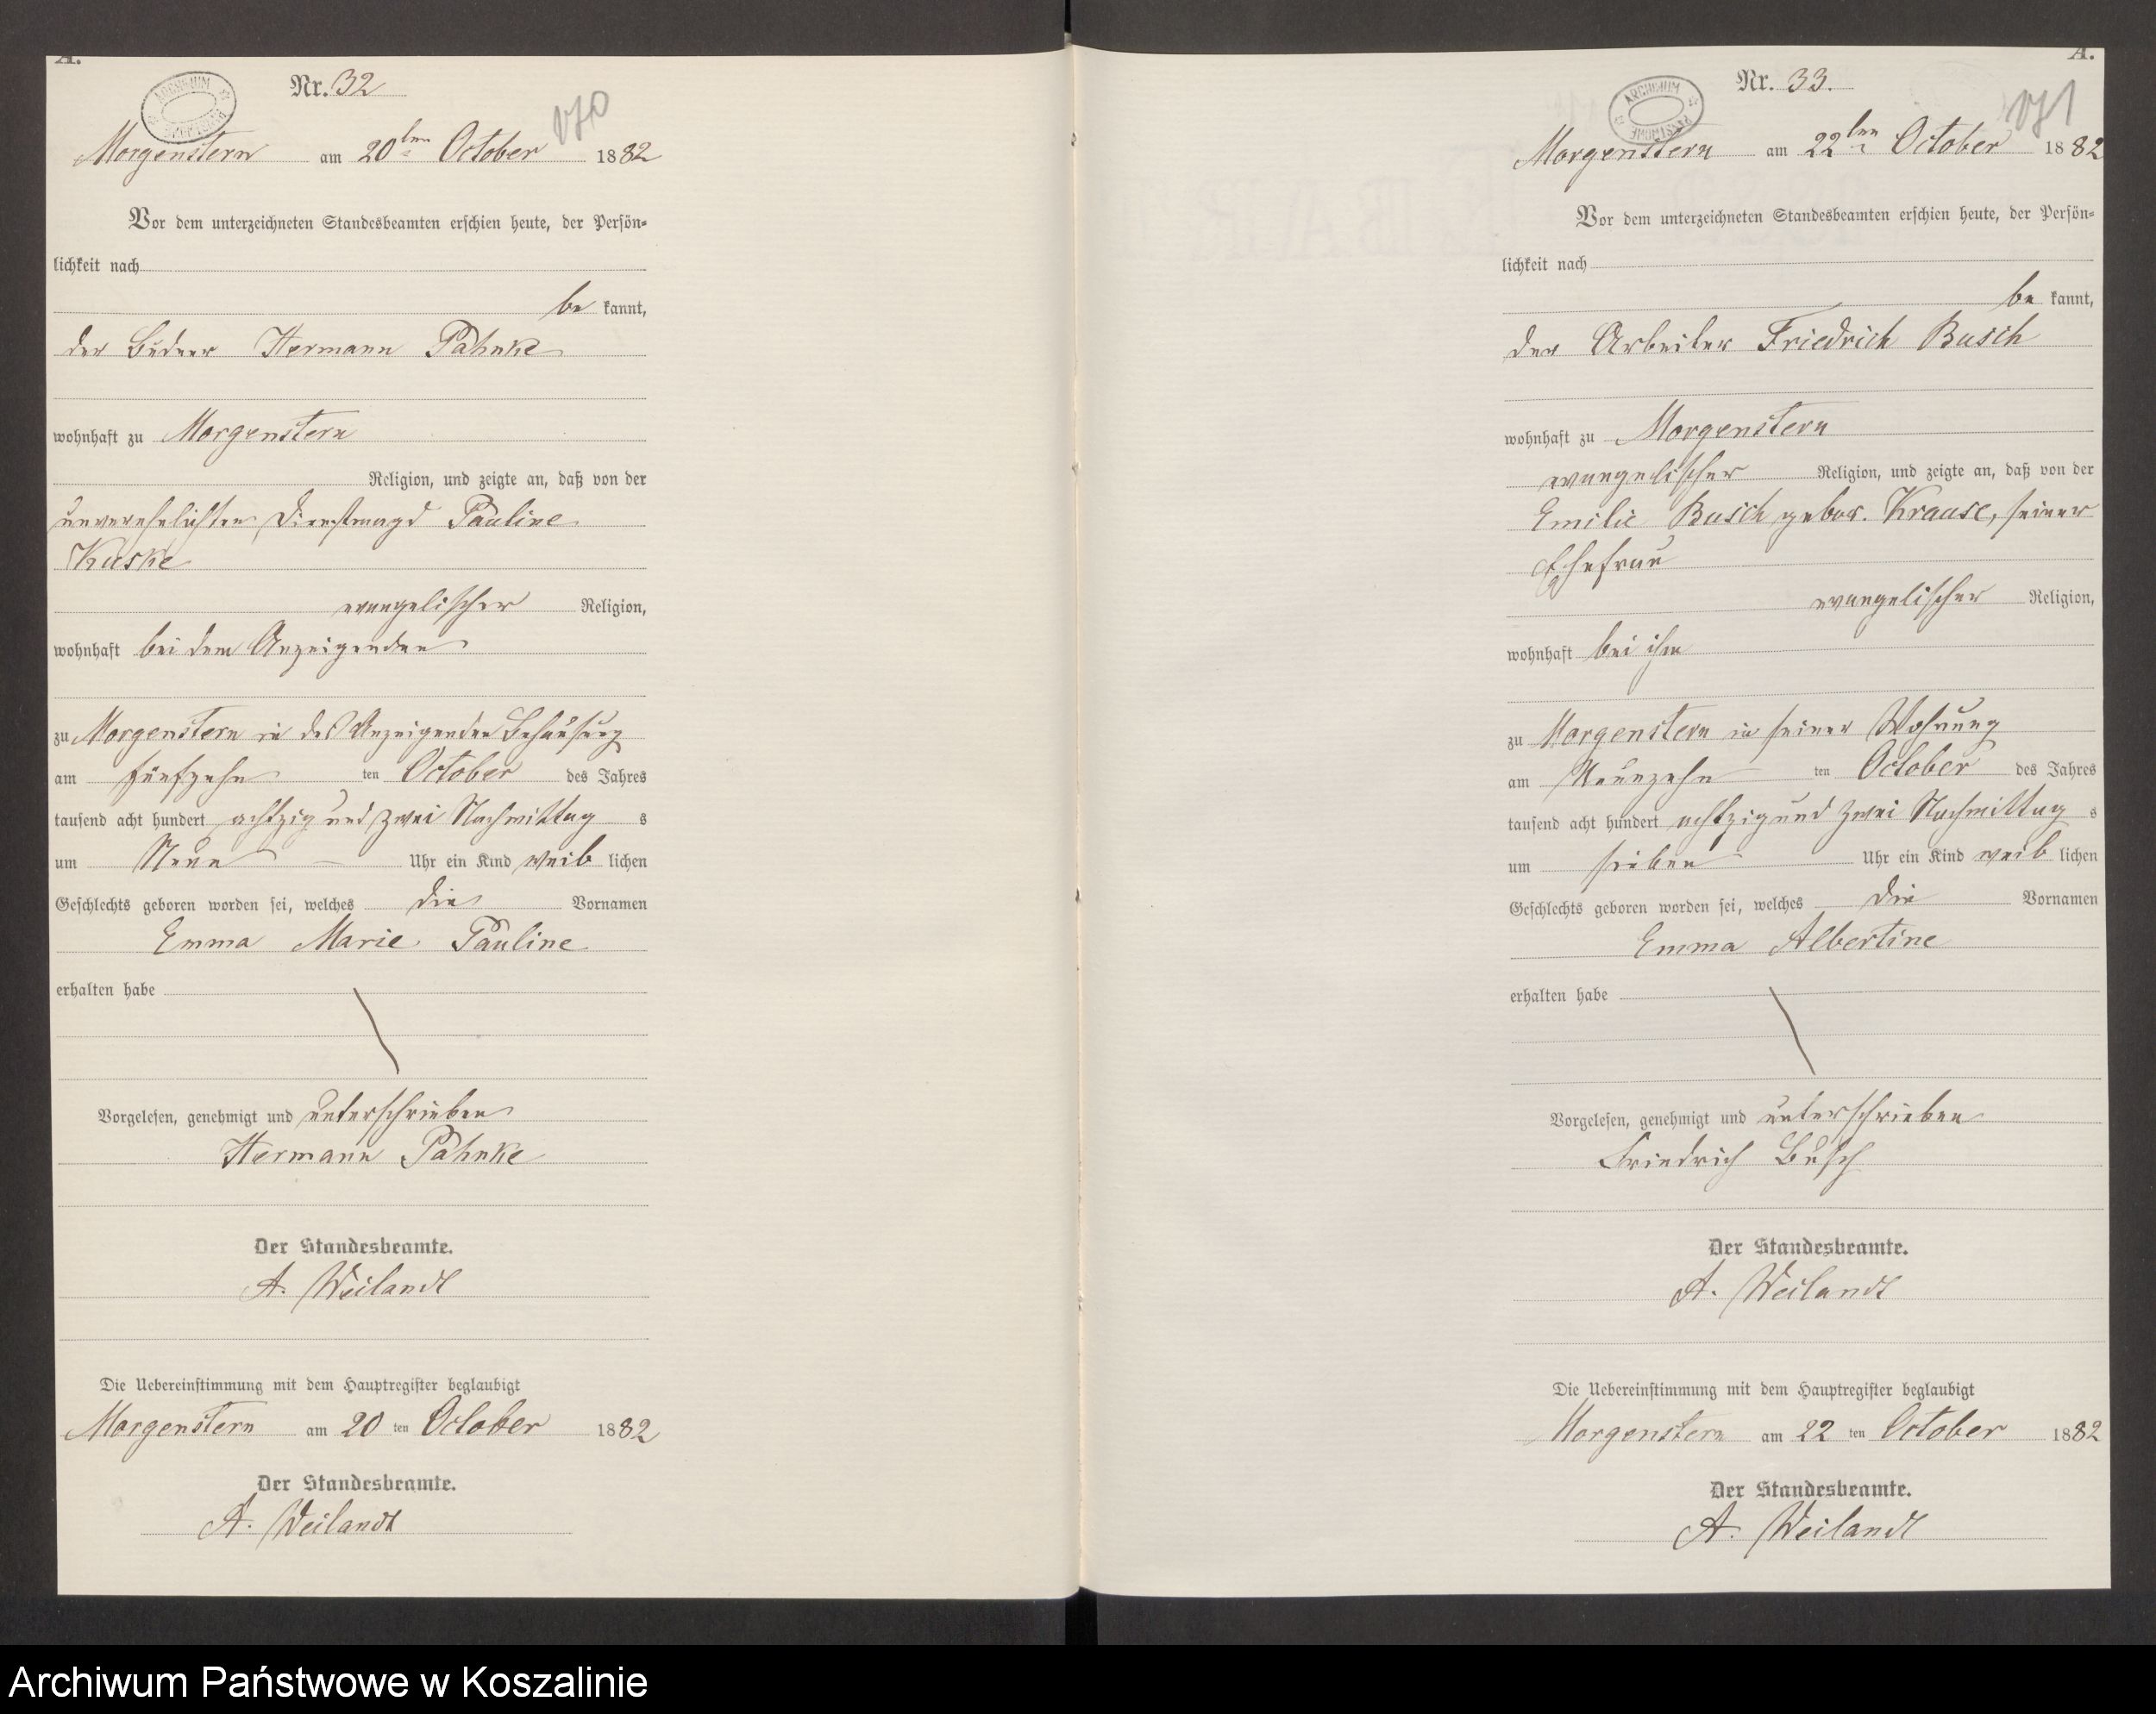 A.
ARCHIWUM PAŃSTWOWE
Nr. 32
070
Morgenstern am 20ten October 1882
Vor dem unterzeichneten Standesbeamten erschien heute, der Persön-
lichkeit nach
be kannt,
der Büdner Hermann Pahnke
wohnhaft zu Morgenstern
Religion, und zeigte an, daß von der
unverehelichten Dienstmagd Pauline
Kuske
evangelischer Religion,
wohnhaft bei dem Anzeigenden
zu Morgenstern in des Anzeigenden Behausung
am fünfzehn ten October des Jahres
tausend acht hundert achtzig und zwei Nachmittag s
um Neun Uhr ein Kind weib lichen
Geschlechts geboren worden sei, welches die Vornamen
Emma Marie Pauline
erhalten habe
Vorgelesen, genehmigt und unterschrieben
Hermann Pahnke
Der Standesbeamte.
A. Weilandt
Die Uebereinstimmung mit dem Hauptregister beglaubigt
Morgenstern am 20 ten October 1882
Der Standesbeamte.
A. Weilandt
A.
ARCHIWUM PAŃSTWOWE
Nr. 33.
071
Morgenstern am 22ten October 1882
Vor dem unterzeichneten Standesbeamten erschien heute, der Persön-
lichkeit nach
be kannt,
der Arbeiter Friedrich Busch
wohnhaft zu Morgenstern
evangelischer Religion, und zeigte an, daß von der
Emilie Busch gebor. Krause, seiner
Ehefrau
evangelischer Religion,
wohnhaft bei ihm
zu Morgenstern in seiner Wohnung
am Neunzehn ten October des Jahres
tausend acht hundert achtzig und zwei Nachmittag s
um sieben Uhr ein Kind weib lichen
Geschlechts geboren worden sei, welches die Vornamen
Emma Albertine
erhalten habe
Vorgelesen, genehmigt und unterschrieben
Friedrich Busch
Der Standesbeamte.
A. Weilandt
Die Uebereinstimmung mit dem Hauptregister beglaubigt
Morgenstern am 22 ten October 1882
Der Standesbeamte.
A. Weilandt
Archiwum Państwowe w Koszalinie